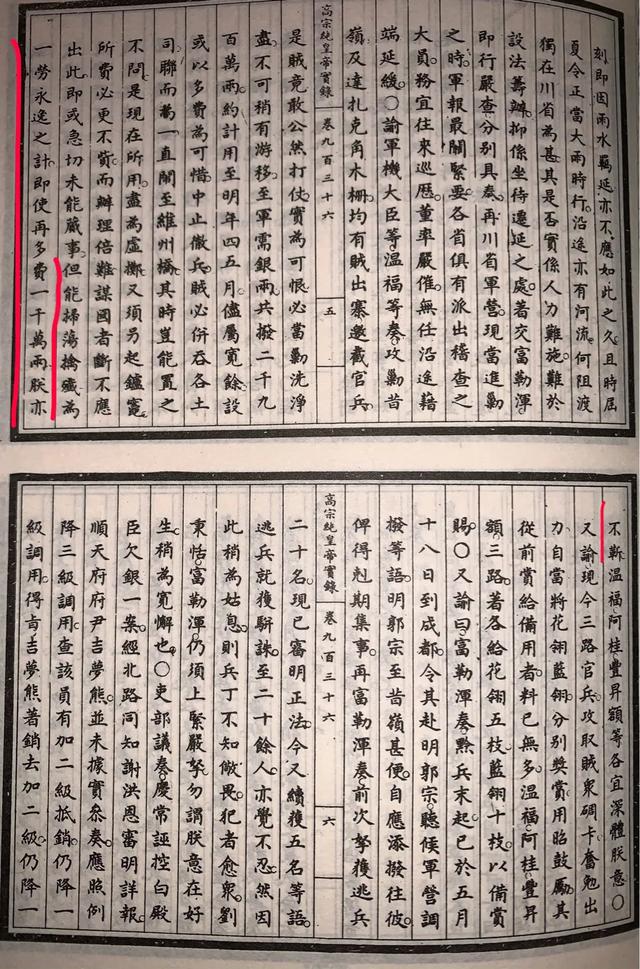 刻即因雨水羈延亦不應如此之久且時屆
夏令正當大雨時行沿途亦有河流何阻渡
獨在川省為甚其是否實係人力難施難於
設法籌辦抑係坐待遷延之處著交富勒渾
即行嚴查分別具奏再川省軍營現當進勦
之時軍報最關緊要各省俱有派出稽查之
大員務宜往來巡歷董率嚴催無任沿途藉
端延緩○諭軍機大臣等溫福等奏攻勦昔
嶺及達扎克角木柵均有賊出寨邀截官兵
高宗純皇帝實錄 卷九百三十六 五
是賊竟敢公然打仗實為可恨必當勦洗淨
盡不可稍有游移至軍需銀兩共撥二千九
百萬兩約計用至明年四五月儘屬寬餘設
或以多費為可惜中止徹兵賊必併吞各土
司聯而為一直鬧至維州橋其時豈能置之
不問是現在所用盡為虛擲又須另起鑪竈
所費必更不貲而辦理倍難謀國者斷不應
出此即或急切未能蕆事但能掃蕩擒殲為
一勞永逸之計即使再多費一千萬兩朕亦
不靳溫福阿桂豐昇額等各宜深體朕意○
又諭現今三路官兵攻取賊眾碉卡奮勉出
力自當將花翎藍翎分別獎賞用昭鼓勵其
從前賞給備用者料已無多溫福阿桂豐昇
額三路著各給花翎五枝藍翎十枝以備賞
賜○又諭曰富勒渾奏黔兵末起已於五月
十八日到成都令其赴明郭宗聽候軍營調
撥等語明郭宗至昔嶺甚便自應添撥往彼
俾得剋期集事再富勒渾奏前次拏獲逃兵
高宗純皇帝實錄 卷九百三十六 六
二十名現已審明正法今又續獲五名等語
逃兵就獲駢誅至二十餘人亦覺不忍然因
此稍為姑息則兵丁不知儆畏犯者愈眾劉
秉恬富勒渾仍須上緊嚴拏勿謂朕意在好
生稍為寬懈也○吏部議奏慶常誣控白殿
臣欠銀一案經北路同知謝洪恩審明詳報
順天府府尹吉夢熊並未據實參奏應照例
降三級調用查該員有加二級抵銷仍降一
級調用得旨吉夢熊著銷去加二級仍降一